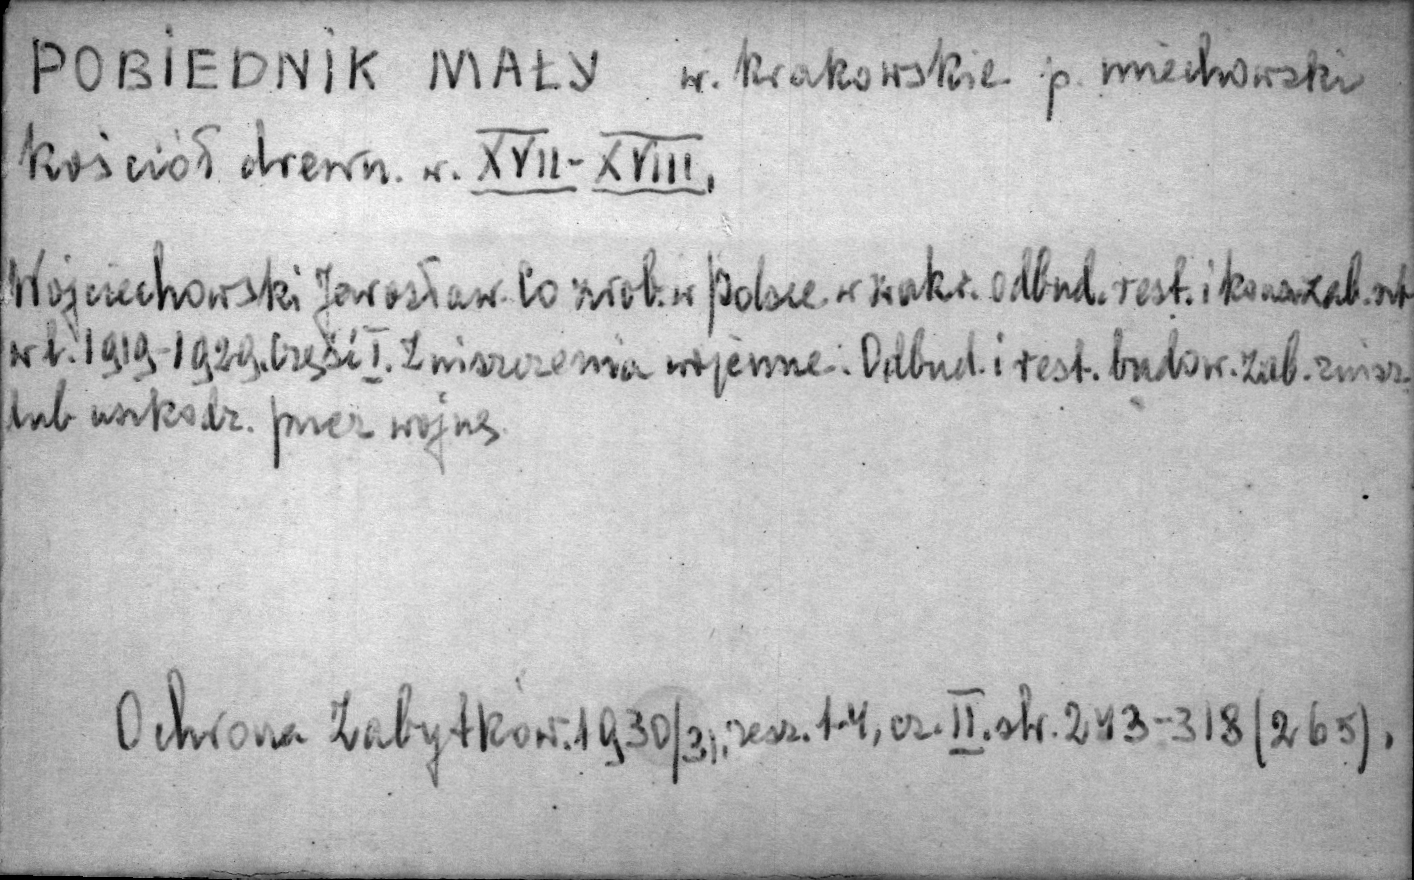 POBIEDNIK MAŁY w. krakowskie p. miechowski
kościół drewn. w. XVII-XVIII.
Wojciechowski Jarosław. Co zrob. w Polsce w zakr. odbud. rest. i kons. zab. szt.
w l. 1919-1929. Część I. Zniszczenia wojenne. Odbud. i rest. budow. zab. zniszcz.
lub uszkodz. przez wojnę
Ochrona Zabytków. 1930/31, zesz. 1-4, cz. II. str. 243-318 (265).